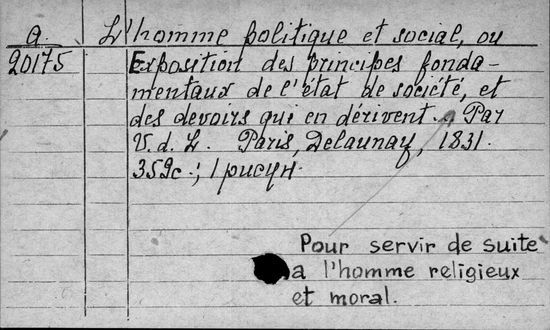 a. L'homme politique et social, ou
20175 Exposition des principes fonda-
mentaux de l'état de société, et
des devoirs qui en dérivent... Par
V. d. L. Paris, Delaunay, 1831.
359с.; 1 рисун.
Pour servir de suite
a l'homme religieux
et moral.